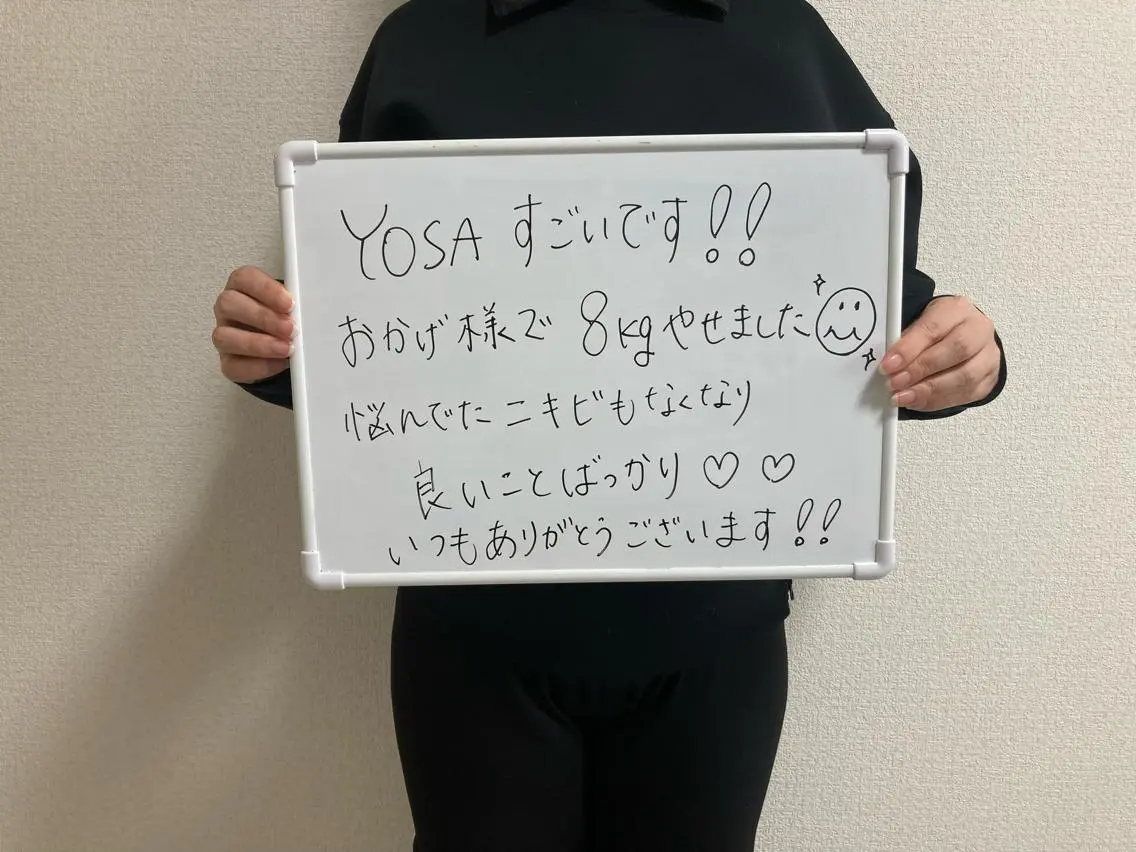 YOSA すごいです!!
おかげ様で 8kgやせました
悩んでた ニキビもなくなり
良いことばっかり♡ ♡
いつもありがとうございます!!